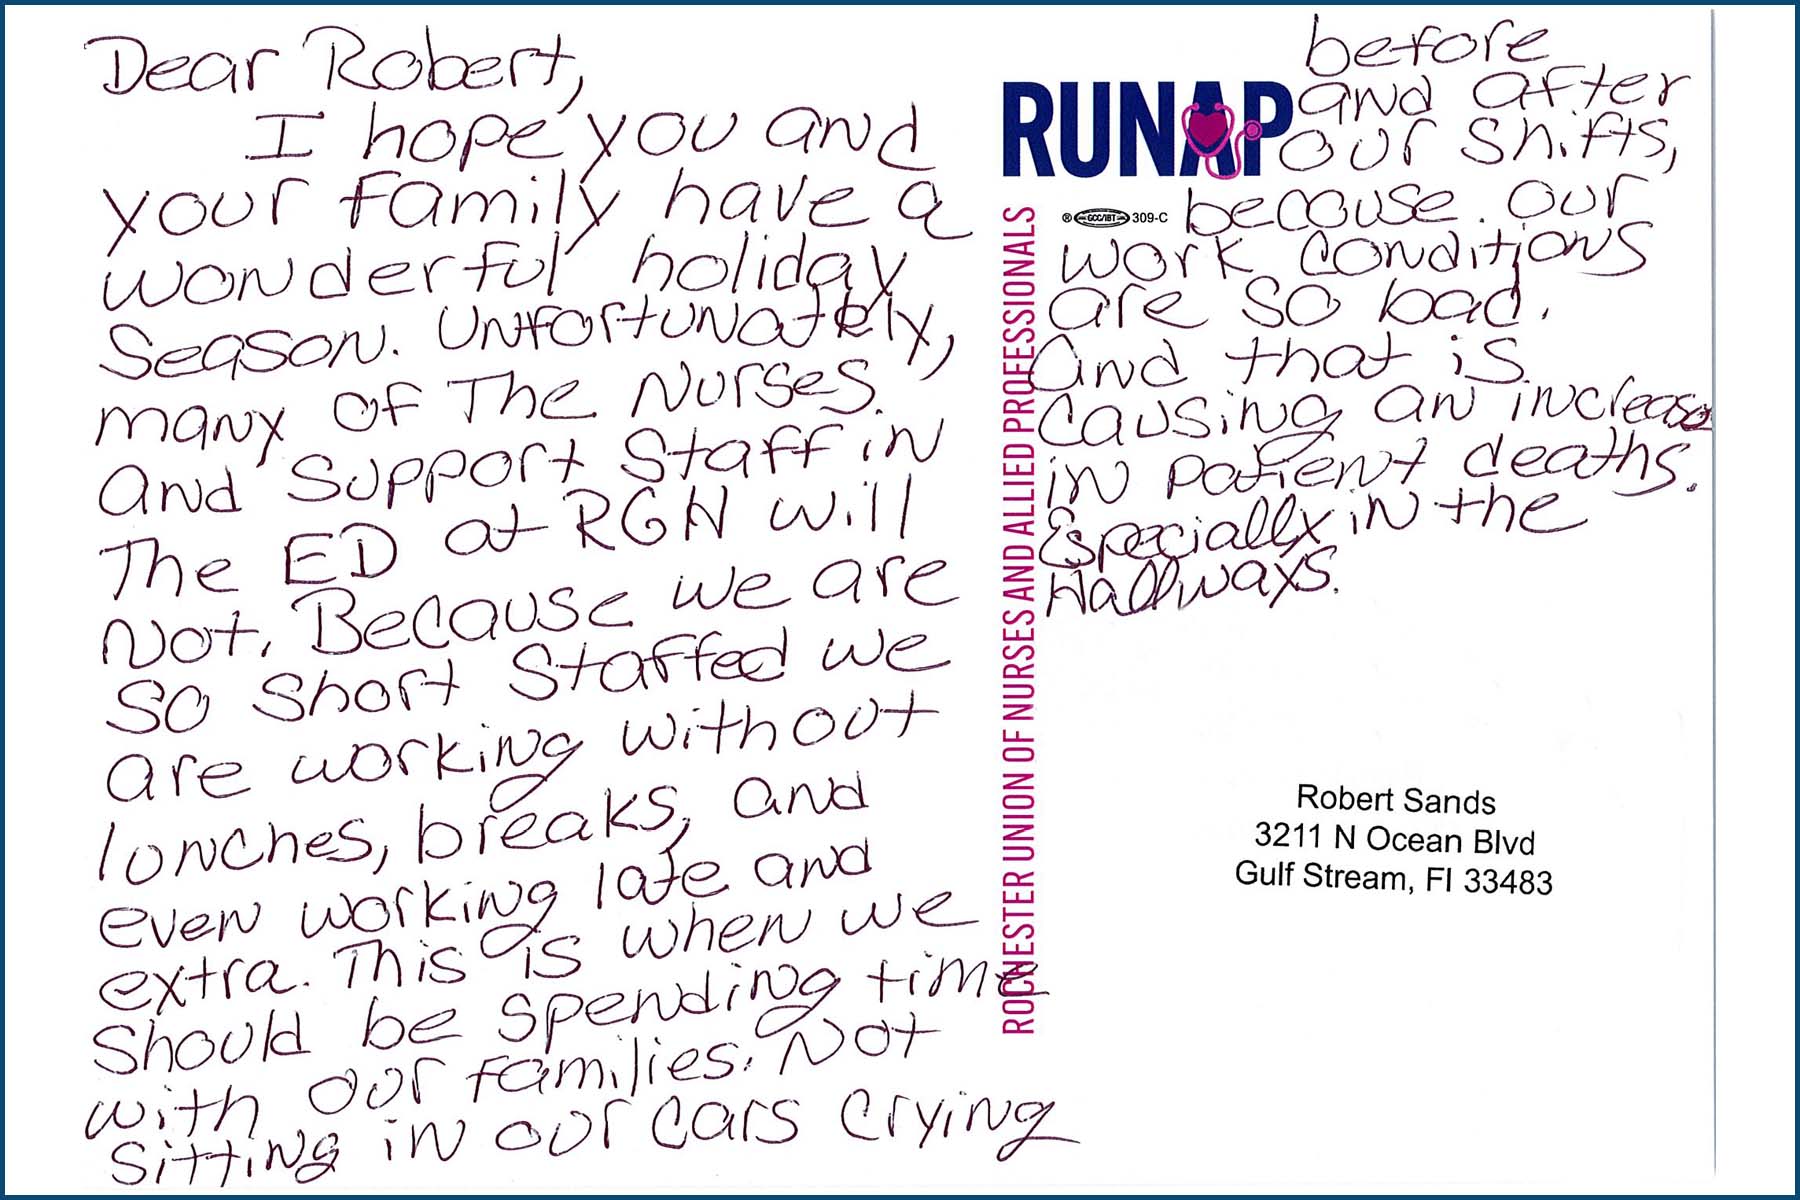 Dear Robert,
I hope you and
your family have a
wonderful holiday
Season. Unfortunately,
many of The Nurses
and Support Staff in
The ED at RGH will
Not. Because we are
so short staffed we
are working without
lunches, breaks, and
even working late and
extra. This is when we
should be spending time
with our families. Not
sitting in our cars crying
before
and after
our shifts,
because our
work conditions
are so bad.
And that is
causing an increase
in patient deaths.
Especially in the
Hallways.
RUNAP
® GCC/IBT 309-C
ROCHESTER UNION OF NURSES AND ALLIED PROFESSIONALS
Robert Sands
3211 N Ocean Blvd
Gulf Stream, Fl 33483